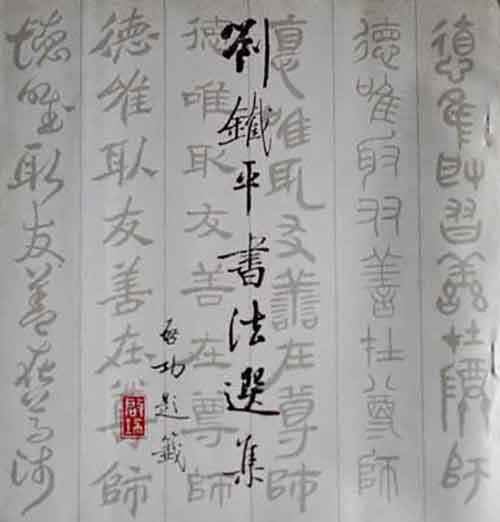 劉鐵平書法選集
啟功題籤
德唯取友善在尊師
德唯取友善在尊師
德唯取友善在尊師
德唯取友善在尊師
德唯取友善在尊師
德唯取友善在尊師